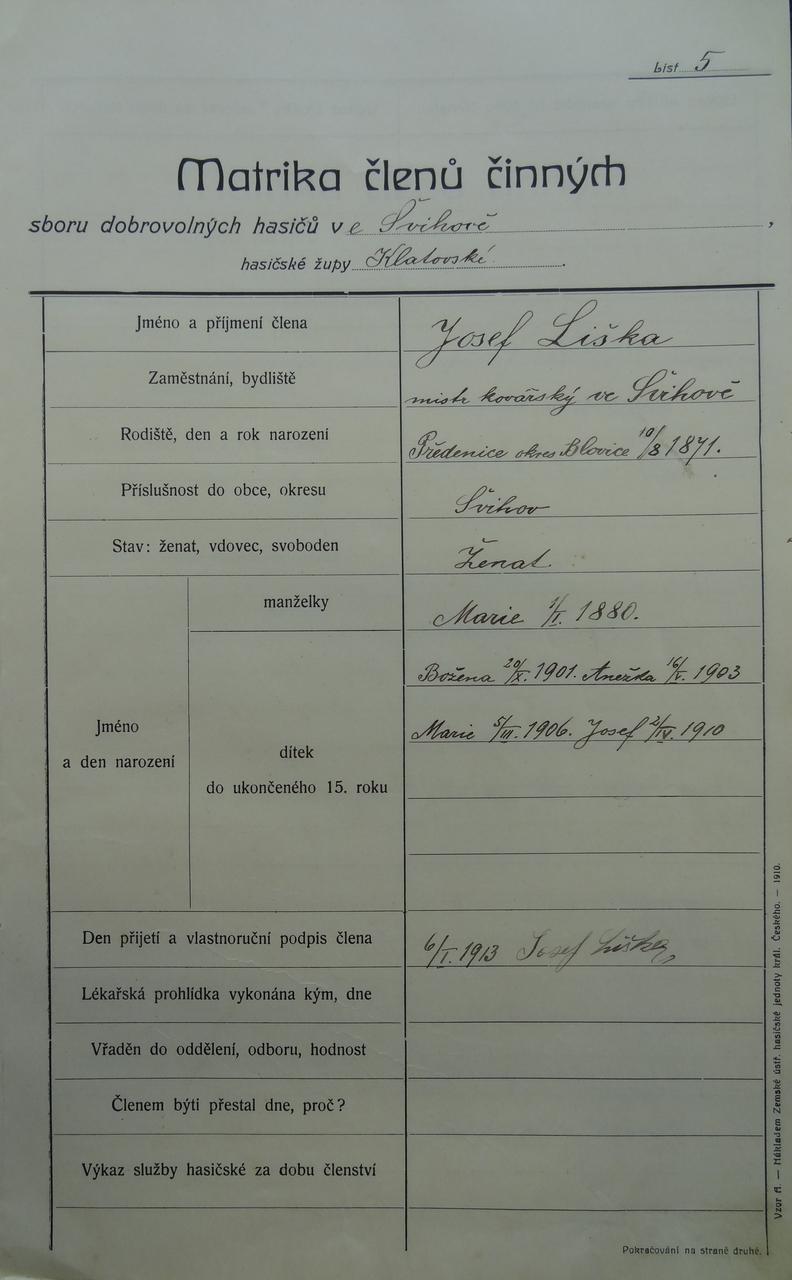 List 5
Matrika členů činných
sboru dobrovolných hasičů ve Švihově,
hasičské župy Klatovské.
Jméno a příjmení člena Josef Liška
Zaměstnání, bydliště mistr kovářský ve Švihově
Rodiště, den a rok narození Předenice okres Blovice 10/8 1871.
Příslušnost do obce, okresu Švihov
Stav: ženat, vdovec, svoboden Ženat.
manželky Marie 1/I. 1880.
Božena 20/X. 1901. Anežka 16/V. 1903
Jméno
a den narození
dítek
do ukončeného 15. roku
Marie 5/III. 1906. Josef 2/IV. 1910
Den přijetí a vlastnoruční podpis člena 6/I. 1913 Josef Liška
Lékařská prohlídka vykonána kým, dne
Vřaděn do oddělení, odboru, hodnost
Členem býti přestal dne, proč?
Výkaz služby hasičské za dobu členství
Pokračování na straně druhé.
Vzor A. — Nákladem Zemské ústř. hasičské jednoty král. Českého. — 1910.